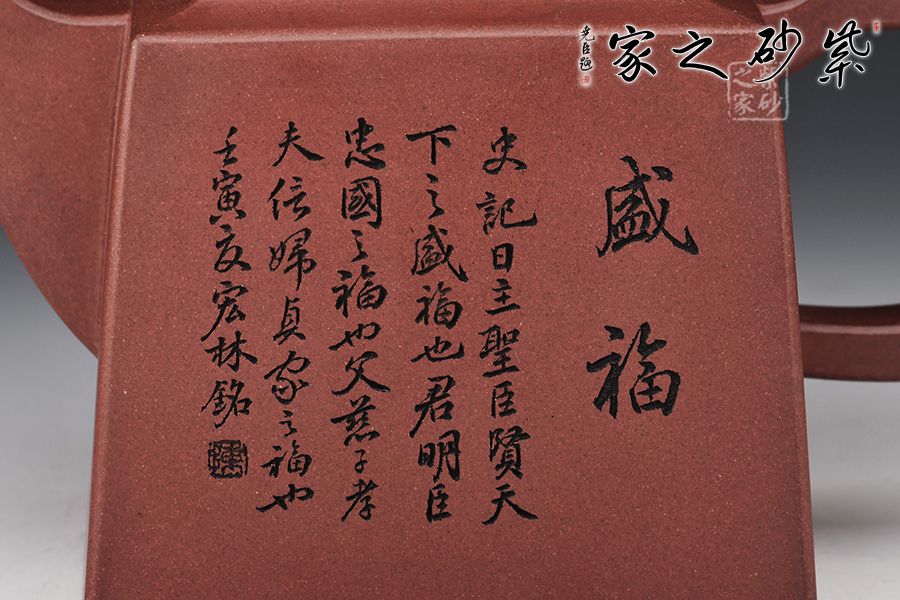 紫砂之家
堯臣題
紫砂之家
盛福
史記曰主聖臣賢天
下之盛福也君明臣
忠國之福也父慈子孝
夫信婦貞家之福也
壬寅夏宏林銘